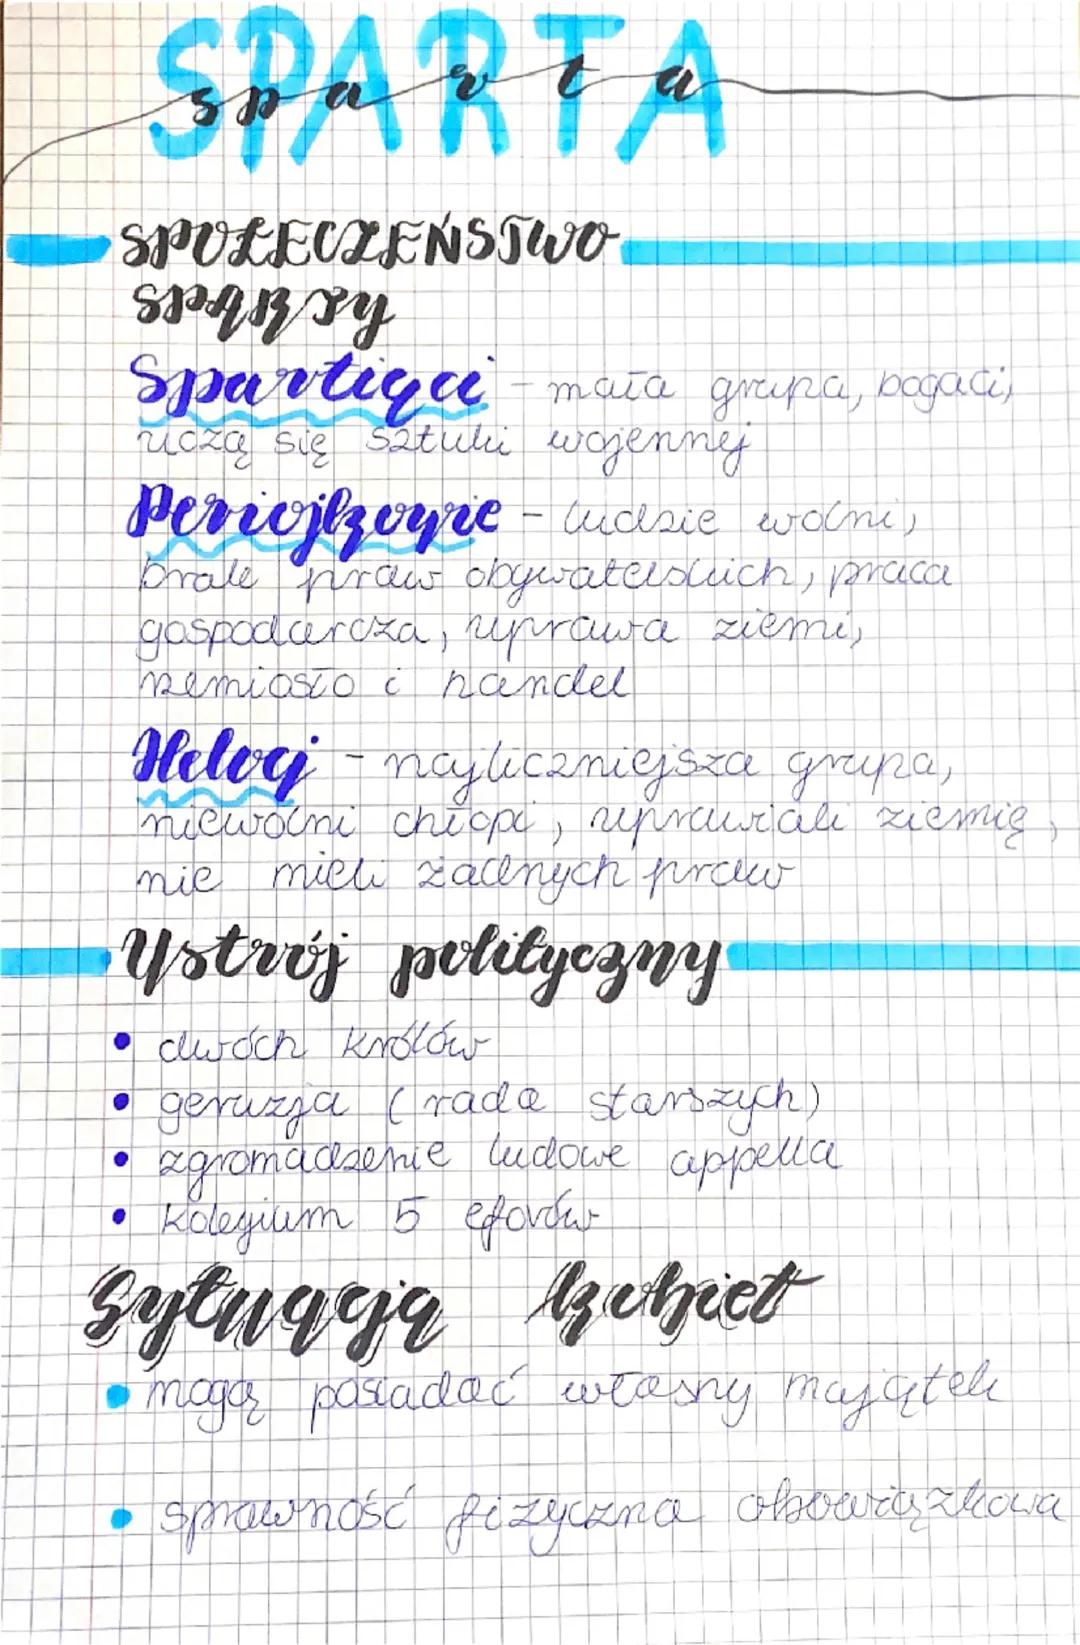 SPARTA
sparta
SPOŁECZEŃSTWO
SPARTY
Spartiaci - mała grupa, bogaci,
uczą się sztuki wojennej
Periojkowie - ludzie wolni,
brak praw obywatelskich, praca
gospodarcza, uprawa ziemi,
rzemiosło i handel
Heloci - najliczniejsza grupa,
niewolni chłopi, uprawiali ziemię,
nie mieli żadnych praw
Ustrój polityczny
• dwóch królów
• geruzja (rada starszych)
• zgromadzenie ludowe appella
• kolegium 5 eforów
Sytuacja kobiet
• mogą posiadać własny majątek
• sprawność fizyczna obowiązkowa